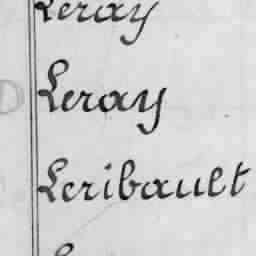 Leray
Leray
Leribault